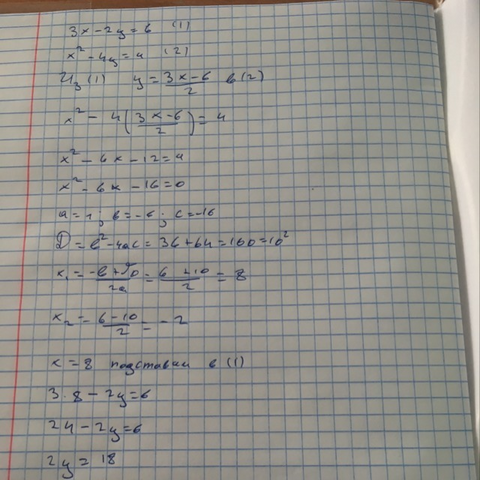 3x-2y=6 (1)
x²-4y=4 (2)
Из (1) y=3x-6/2 в (2)
x²-4(3x-6/2)=4
x²-6x-12=4
x²-6x-16=0
a=1; b=-6; c=-16
D=b²-4ac=36+64=100=10²
x₁=-b+√D/2a=6+10/2=8
x₂=6-10/2=-2
x=8 подставим в (1)
3·8-2y=6
24-2y=6
2y=18